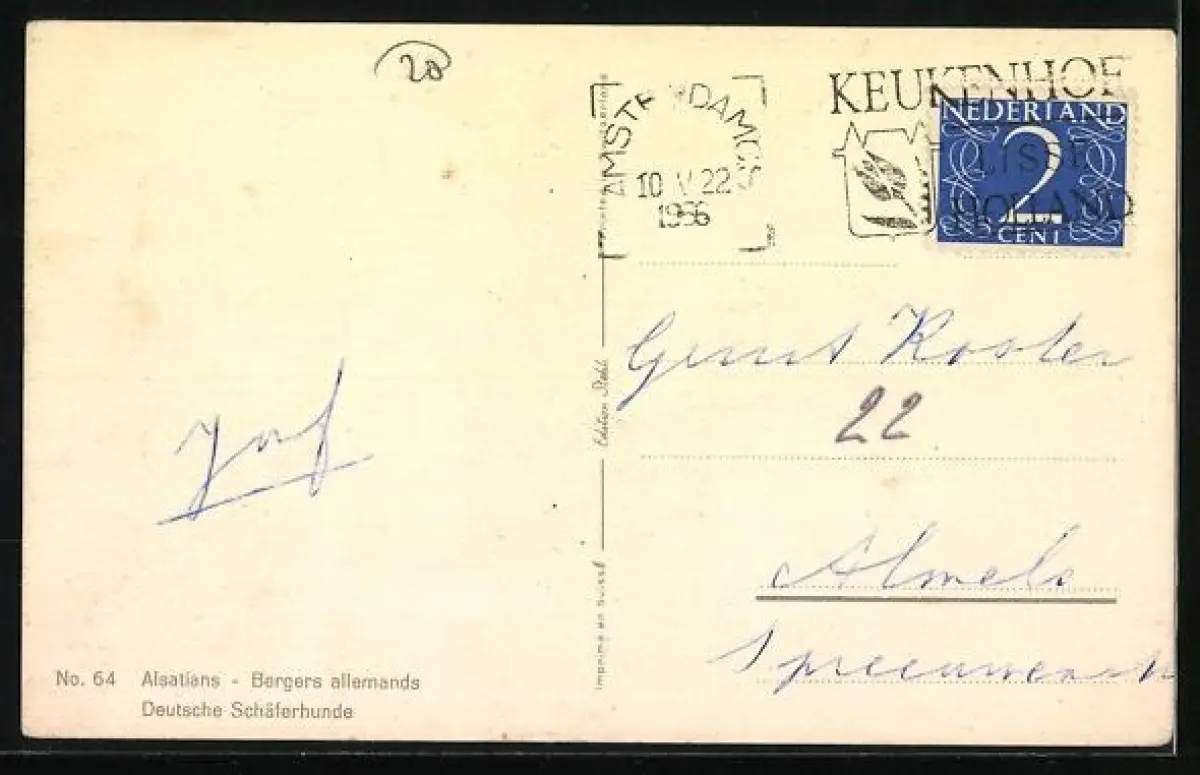 20
AMSTERDAM CS
10 V 22
1956
KEUKENHOF
LISSE
HOLLAND
NEDERLAND
2
CENT
Koster
22
Almelo
Jos
Edition Stehli
Imprimé en Suisse
No. 64 Alsatians - Bergers allemands
Deutsche Schäferhunde